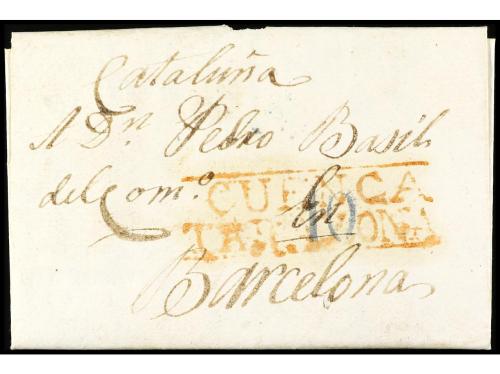 Cataluña
A Dn Pedro Basil
del Com.o
CUENCA
En
TARANCON
10
Barcelona